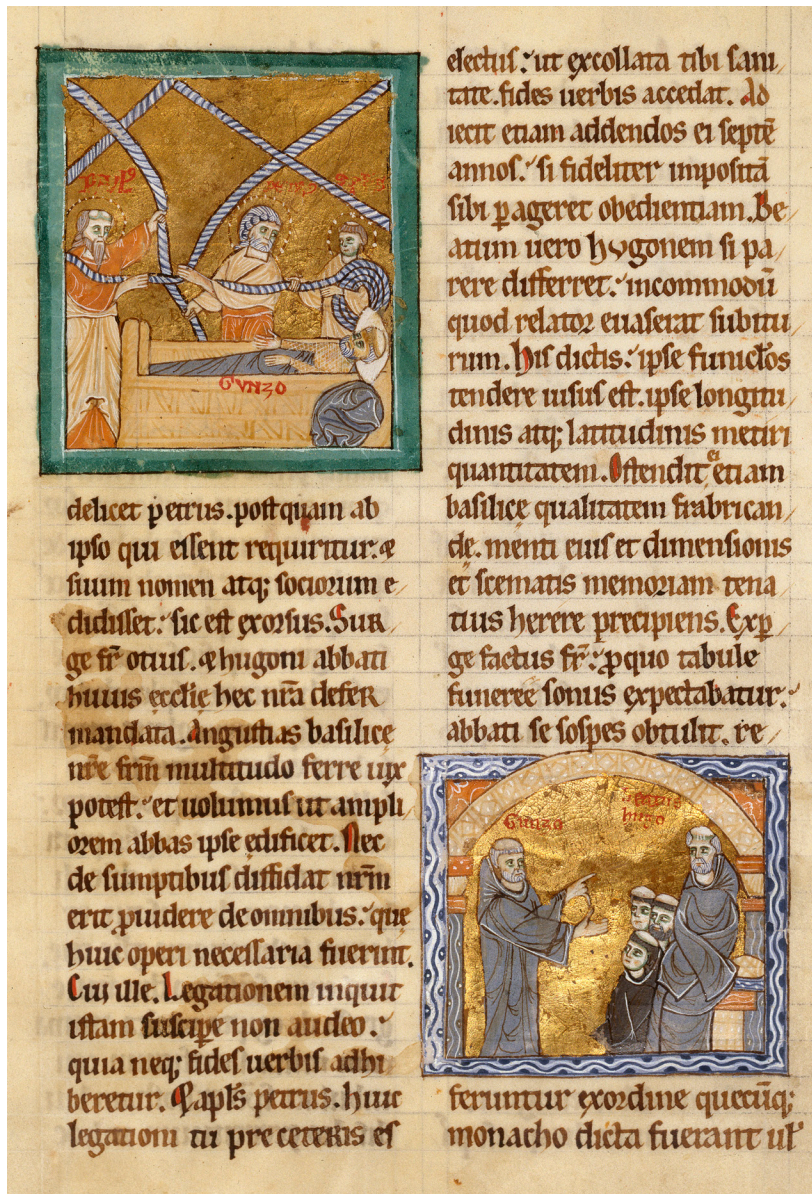 GVNZO
delicet petrus. postquam ab
ipso qui essent requiritur. &
suum nomen atq; sociorum e
didisset. sic est exorsus. Sur
ge fr̄ otius. & hugoni abbati
huius ecclie hec nr̄a defer
mandata. Angustias basilice
nr̄e fr̄m multitudo ferre uix
potest. et uolumus ut ampli
orem abbas ipse edificet. Nec
de sumptibus diffidat nr̄m
erit ꝓuidere de omnibus. que
huic operi necessaria fuerint.
Cui ille. Legationem inquit
istam suscipe non audeo.
quia neq; fides uerbis adhi
beretur. apl̄s petrus. huic
legationi tu pre ceteris es
electus. ut excollata tibi sani
tate. fides uerbis accedat. Ad
iecit etiam addendos ei septē
annos. si fideliter impositā
sibi ꝑageret obedientiam. Be
atum uero hugonem si pa
rere differret. incommodū
quod relator euaserat subitu
rum. His dictis. ipse funiclos
tendere uisus est. ipse longitu
dinis atq; latitudinis metiri
quantitatem. Ostendit ei etiam
basilice qualitatem frabrican
de. menti eius et dimensionis
et scematis memoriam tena
tius herere precipiens. Exꝑ
ge factus fr̄. ꝓ quo tabule
funeree sonus expectabatur.
abbati se sospes obtulit. re
Gunzo
hugo
feruntur exordine quecūq;
monacho dicta fuerant ul̄